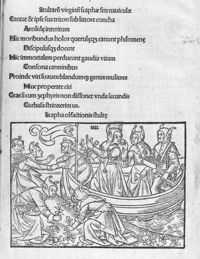 Stultarū virginū scaphæ seu nauiculæ
Cantat & ipse suo triton sub littore concha
Aeolidę interitum
Hic moribundus holor querulęqȝ canunt philomenę
Discipulasqȝ docent
Hic immortalem perducunt gaudia vitam
Consona carminibus
Proinde viri suaues blandumqȝ genus mulieres
Huc properate citi
Cras si cum zephyris non dissonet vnda secundis
Carbasa strinxerimus.
Scapha olfactionis stultę